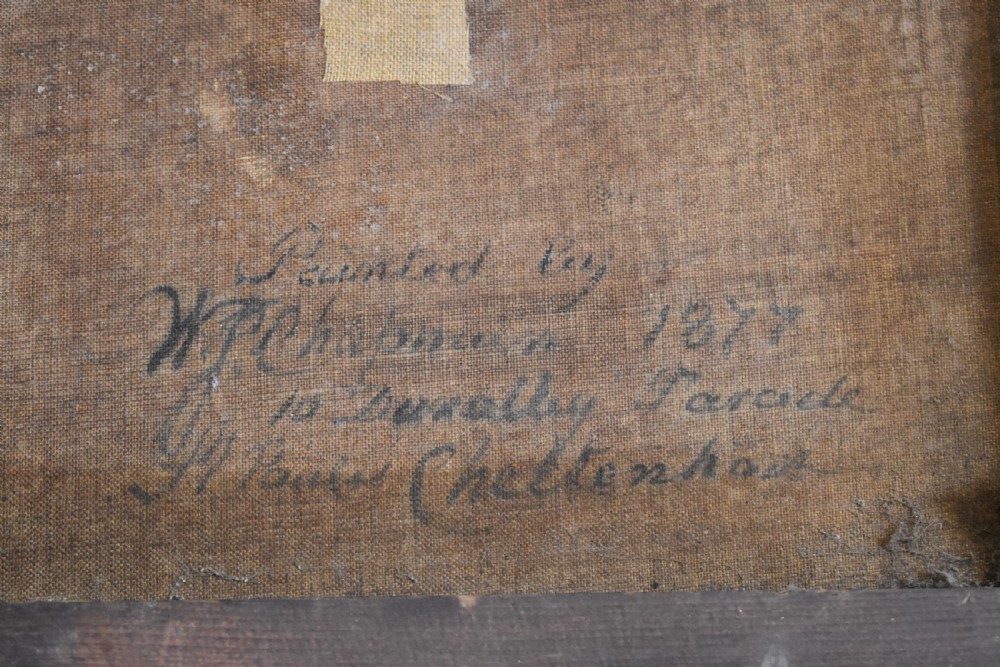 Painted by
W.P. Chapman 1877
10 Dunalley Parade
St Pauls Cheltenham